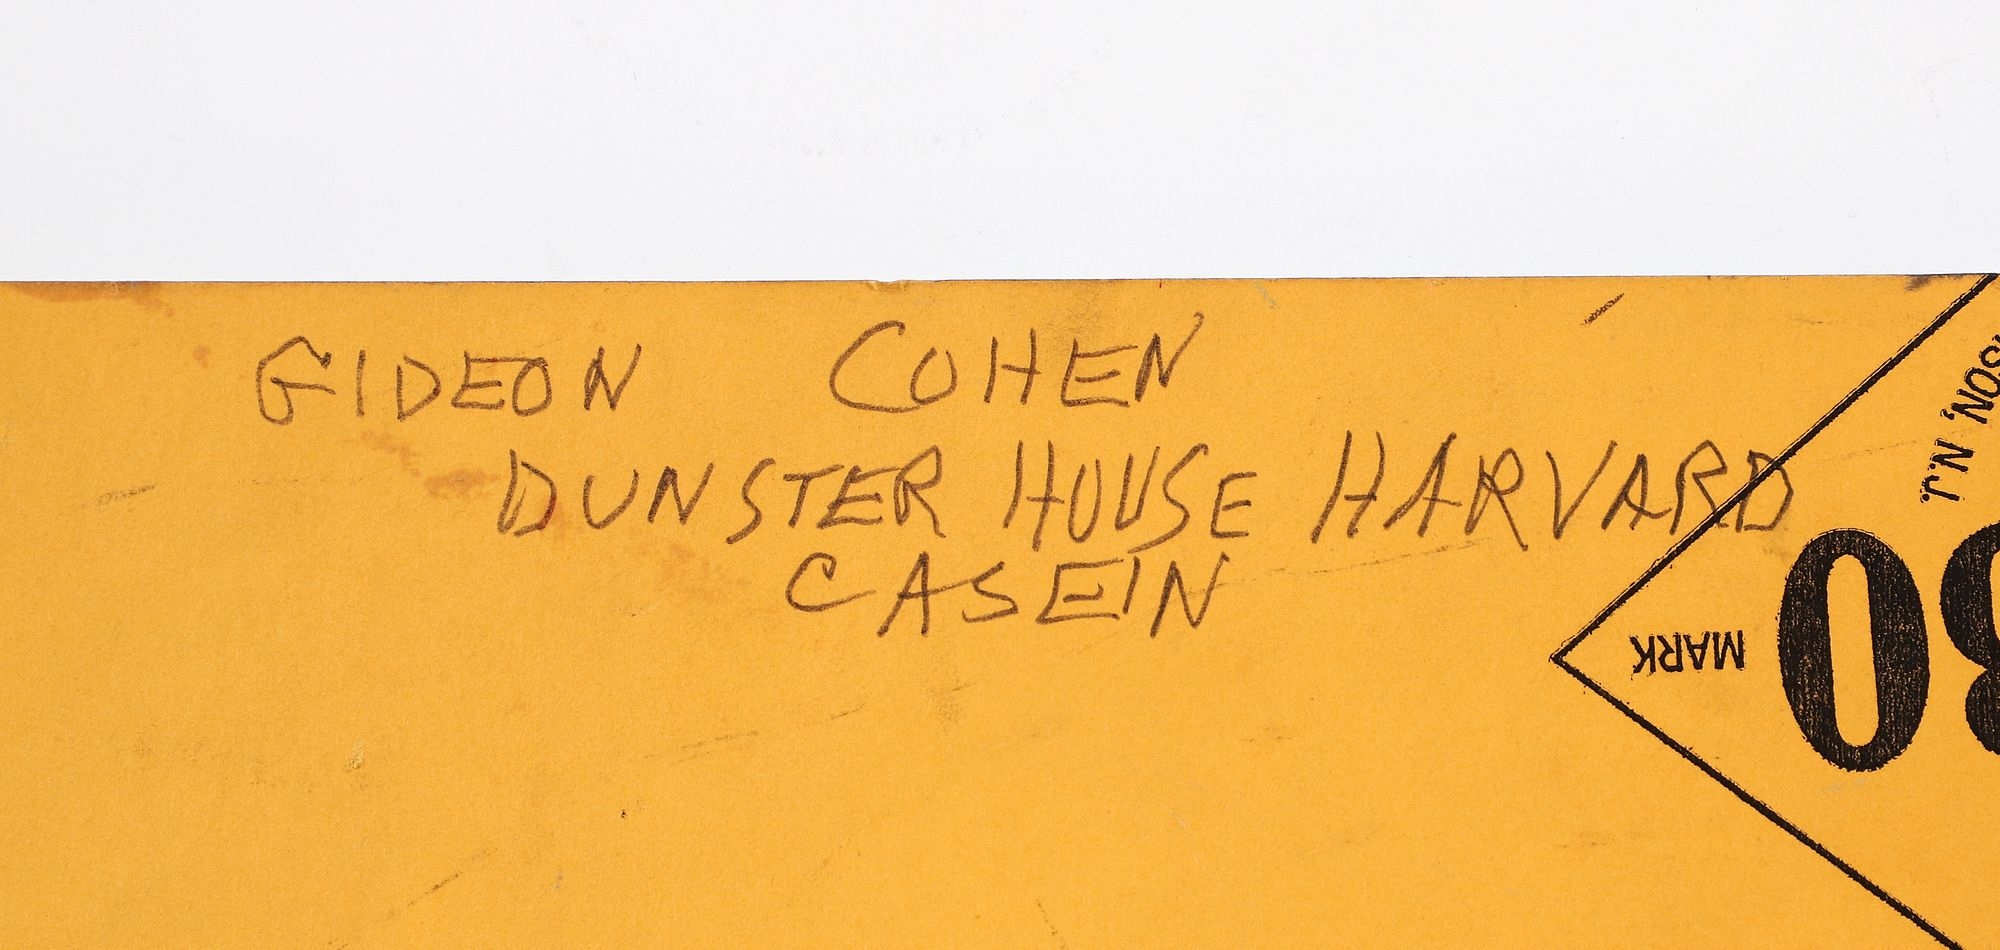 GIDEON COHEN
DUNSTER HOUSE HARVARD
CASEIN
N.J.
MARK